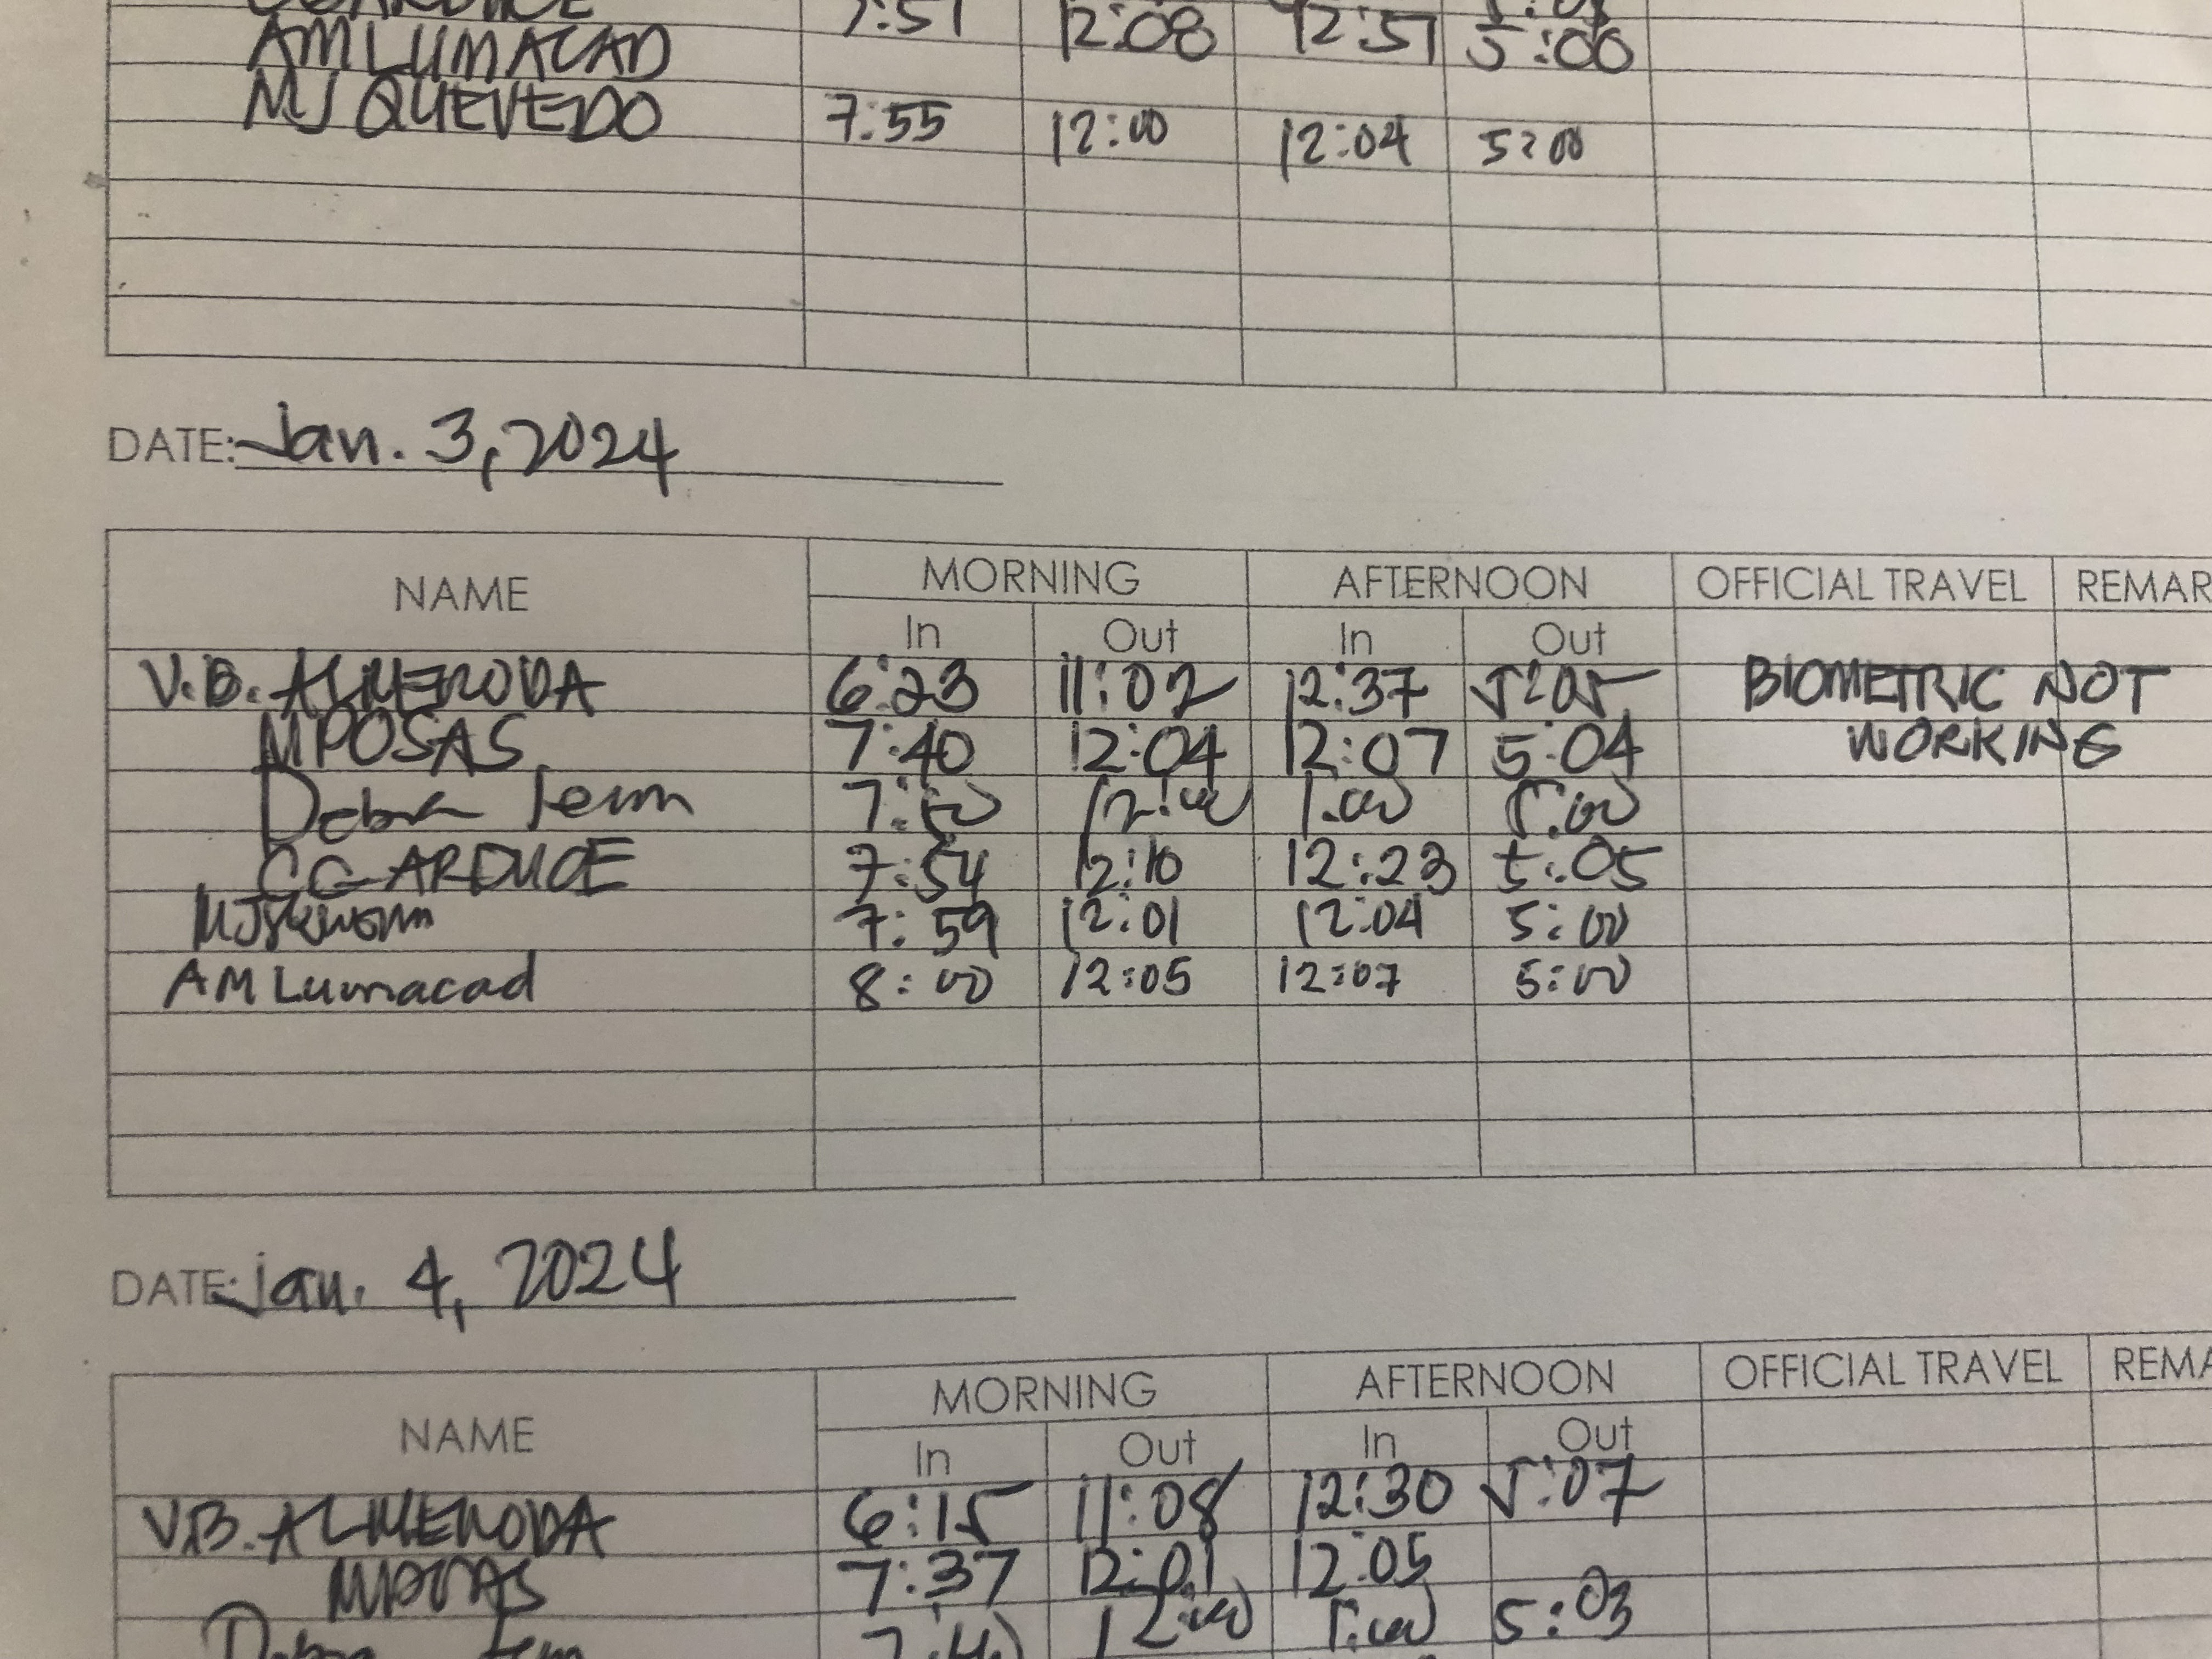 7:51 12:08 12:51 5:00
AM LUMACAD
MJ QUEVEDO 7:55 12:00 12:04 5:00
DATE: Jan. 3, 2024
NAME MORNING AFTERNOON OFFICIAL TRAVEL REMAR
In Out In Out
V.B. ALMENODA 6:23 11:02 12:37 5:05 BIOMETRIC NOT
MPOSAS 7:40 12:04 12:07 5:04 WORKING
Debra Jenn 7:50 12:00 1:00 5:00
CG ARDUCE 7:54 12:10 12:23 5:05
7:59 12:01 12:04 5:00
AM Lumacad 8:00 12:05 12:07 5:00
DATE: Jan. 4, 2024
NAME MORNING AFTERNOON OFFICIAL TRAVEL REMA
In Out In Out
V.B. ALMENODA 6:15 11:08 12:30 5:07
7:37 12:01 12:05
Debra 12:00 1:00 5:03